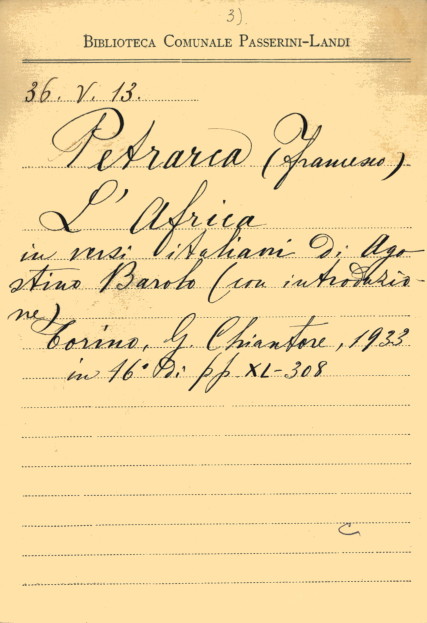 3).
BIBLIOTECA COMUNALE PASSERINI-LANDI
36. V. 13.
Petrarca (Francesco)
L'Africa
in versi italiani di Ago-
stino Barolo (con introduzio-
ne)
Torino, G. Chiantore, 1933
in 16° di pp XL-308
C